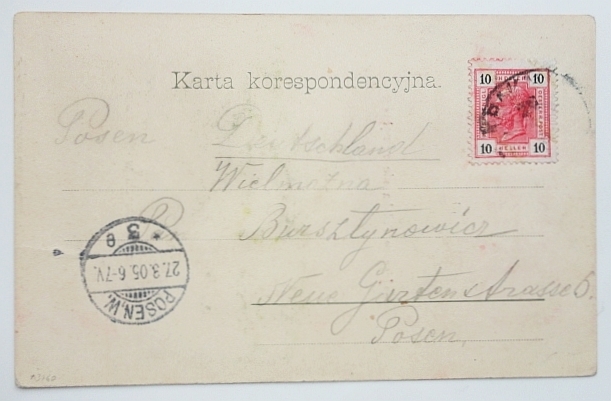 Karta korespondencyjna.
10 10
10 HELLER 10
Posen Deutschland
Wielmożna
P. Bursztynowicz
Neue Gartenstrasse 6.
Posen.
* 3 e
27.3.05.6-7V.
POSEN.W.